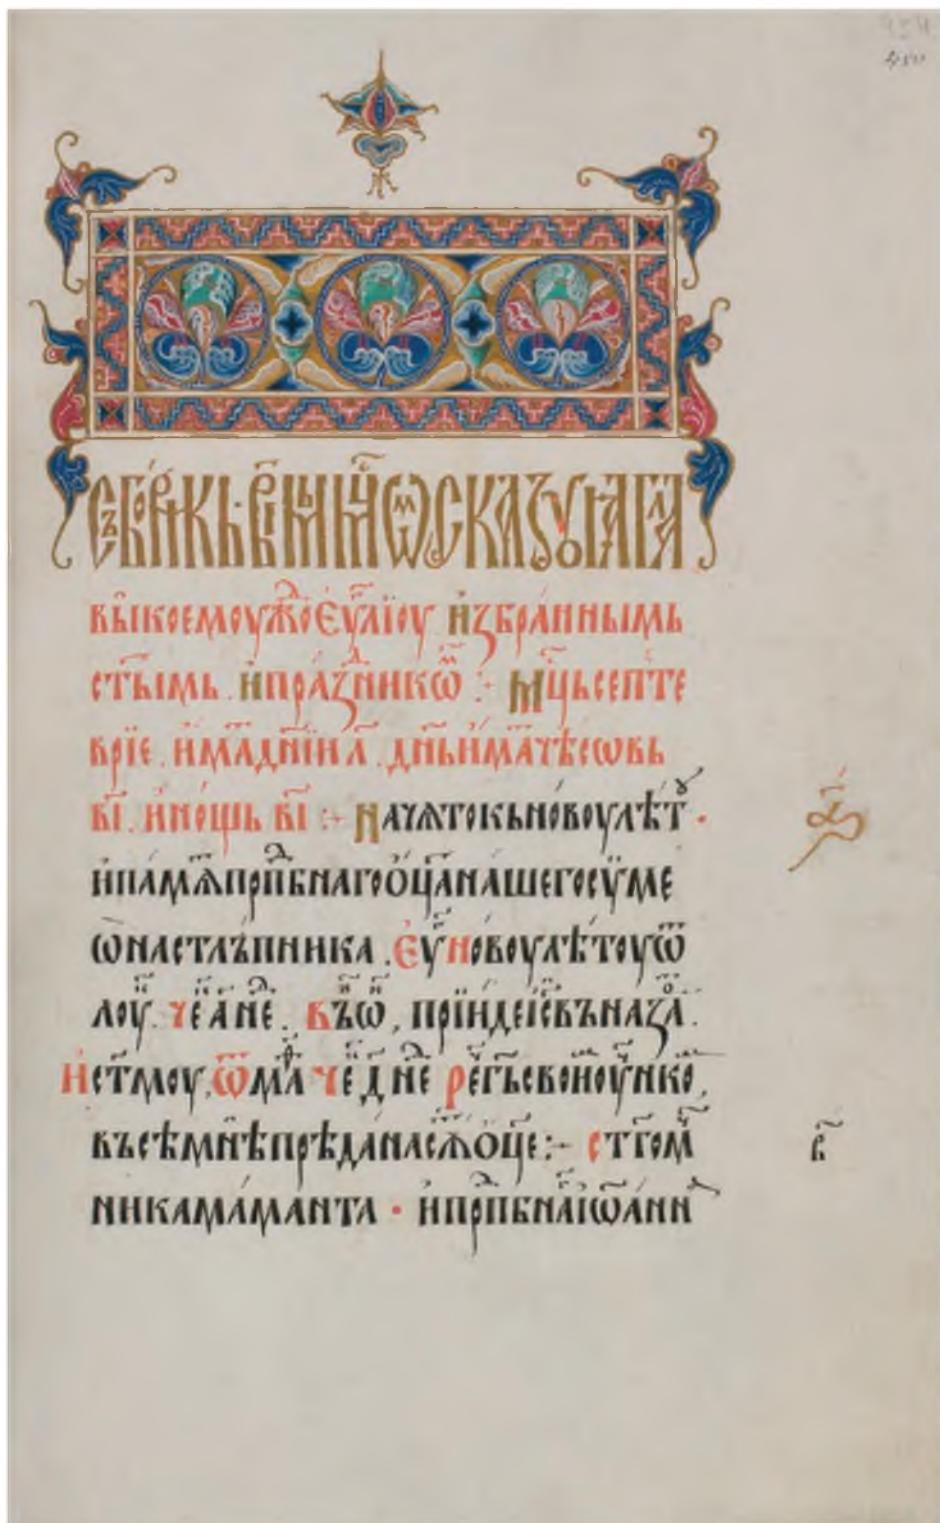 съборникь. в҃і м҃цѡⷨ сказоуѧ гл҃ѧ
вы̑коемоуⷤдоеѵ҃лїоу и҆збра́ннымь
ст҃ымь. и҆пра́зⷣникѡⷨ :· мц҃ьсепте́
врїе. и҆ма́дн҃їил҃. дн҃ьи҆ма́тчѣсѡвь
в҃і. и҆но́щь в҃і :· начѧтокьно́воулѣ́тꙋ ·
и҆па́мѧⷮпрⷣпбнагоѻ҆ц҃ана́шегосѵ̈ме
ѡ҆настлъ́пника. еѵⷢ҇но́воулѣ́тоуѿ
лоуⷦ҇. че҃ а҃ нⷣе. въѡⷩ҇, прїи́деі҆с҃въназаⷬ҇.
и҆ст҃моу, ѿмаⷴ҇ че҃ д҃ нⷣе рече́гь҃свои҆моу҆ч҃нко,
въсѣ́мнѣпрѣ́данасѫⷮѻ҆ц҃е :· ст҃гомⷱ҇
никама́манта · и҆прⷣпбнаⷢ҇іѡ҆а́нн
в҃